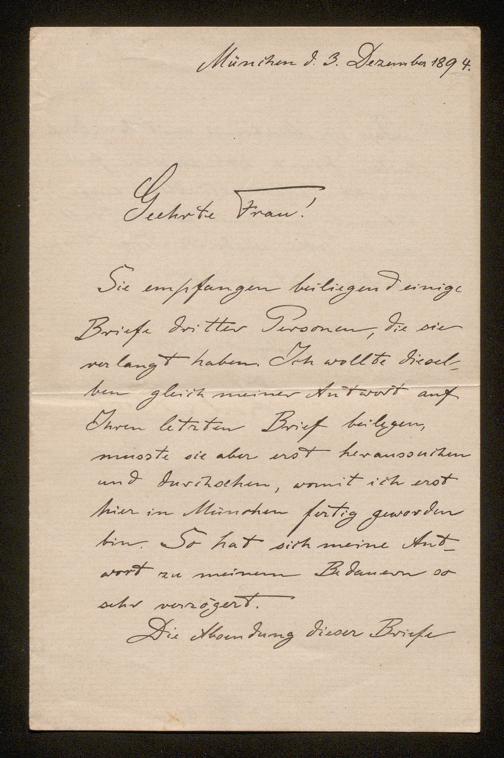 München d. 3. Dezember 1894.
Geehrte Frau!
Sie empfangen beiliegend einige
Briefe dritter Personen, die sie
verlangt haben. Ich wollte diesel-
ben gleich meiner Antwort auf
Ihren letzten Brief beilegen,
musste sie aber erst heraussuchen
und durchsehen, womit ich erst
hier in München fertig geworden
bin. So hat sich meine Ant-
wort zu meinem Bedauern so
sehr verzögert.
Die Absendung dieser Briefe